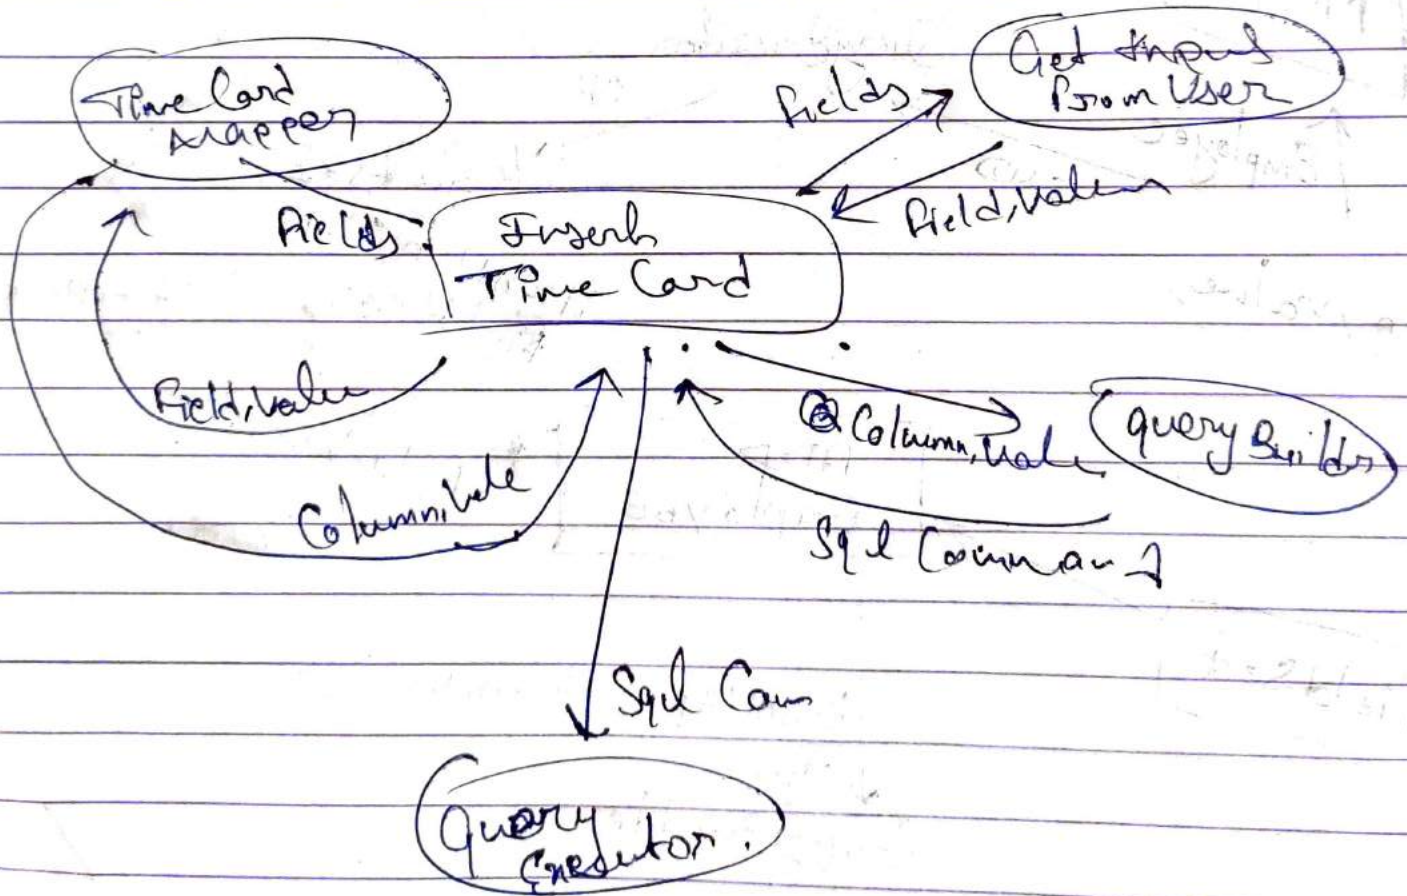 Time Card
Mapper
Get Input
From User
Fields
Field, Value
Fields
Insert
Time Card
Field, Value
Column, Vale
Column, Vale
Query Builder
Sql Command
Sql Com
Query
Executor.